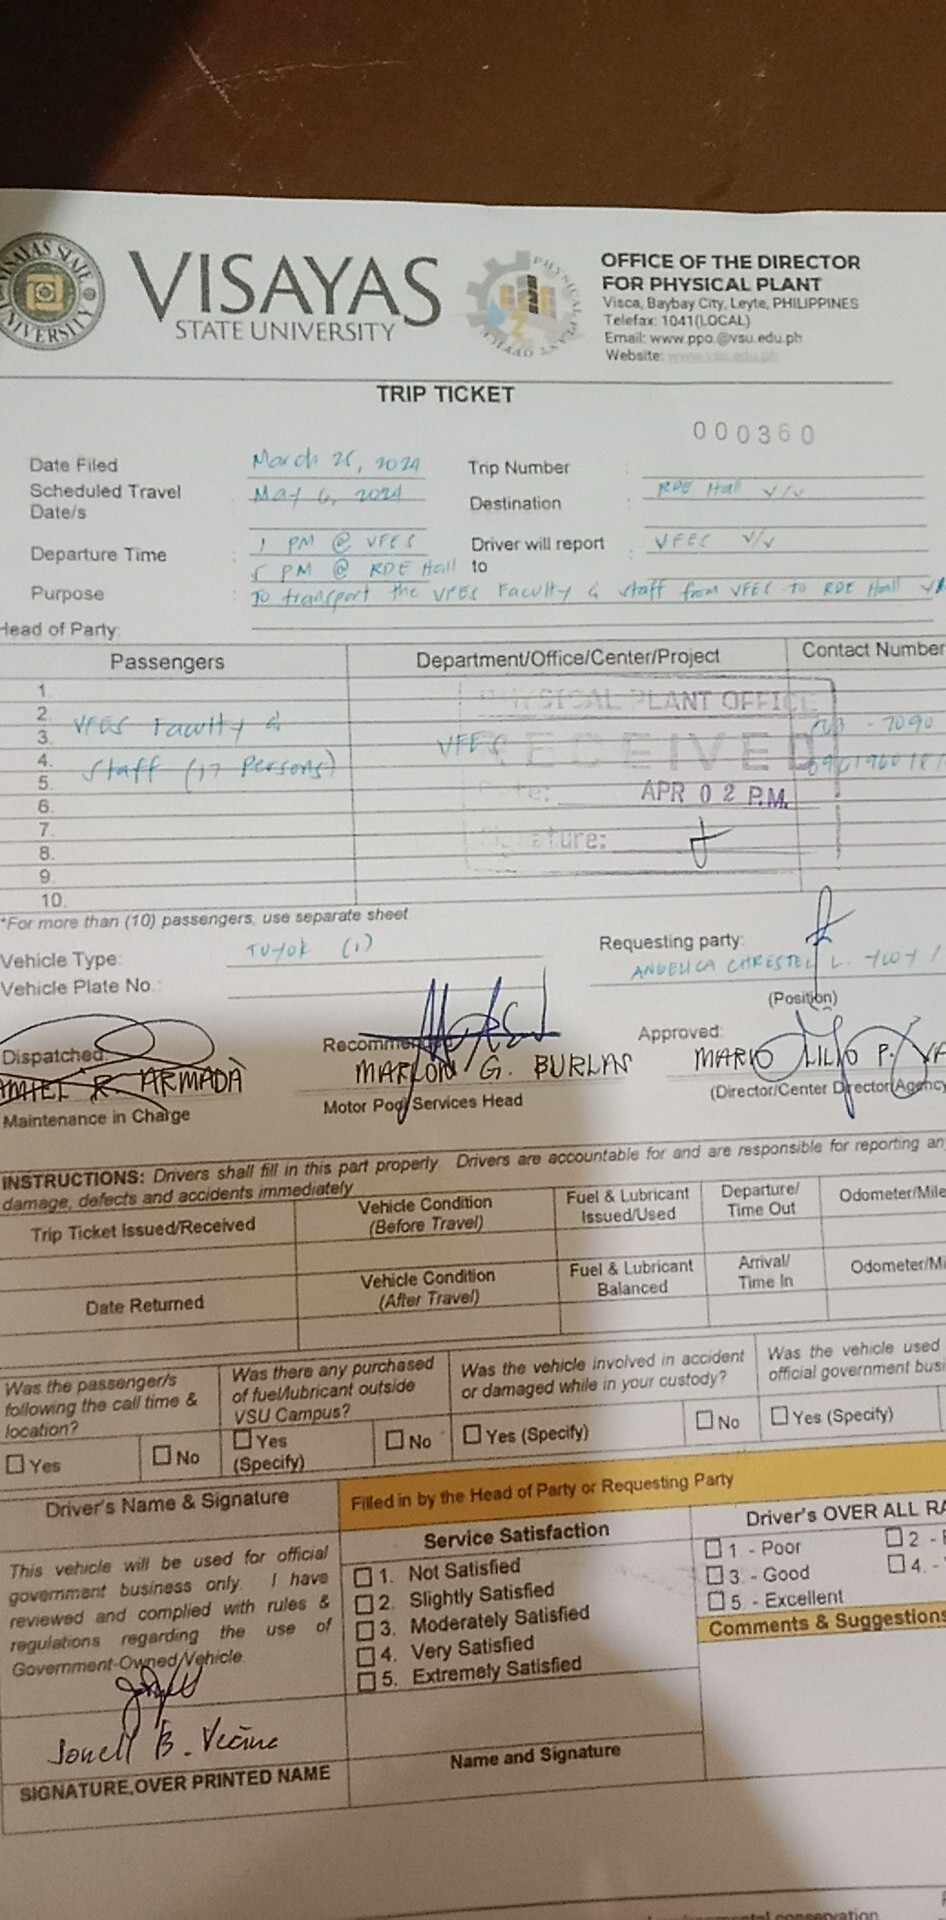 VISAYAS STATE UNIVERSITY
VISAYAS
STATE UNIVERSITY
PHYSICAL PLANT OFFICE
OFFICE OF THE DIRECTOR
FOR PHYSICAL PLANT
Visca, Baybay City, Leyte, PHILIPPINES
Telefax: 1041(LOCAL)
Email: www.ppo.@vsu.edu.ph
Website: www.vsu.edu.ph
TRIP TICKET
000360
Date Filed : March 25, 2024 Trip Number :
Scheduled Travel Date/s : May 6, 2024 Destination : RDE Hall v/v
Departure Time : 1 PM @ VFES Driver will report to : VFES v/v
5 PM @ RDE Hall
Purpose : To transport the VFES Faculty & staff from VFES to RDE Hall
Head of Party:
Passengers Department/Office/Center/Project Contact Number
1.
2.
3. VFES Faculty &
4. Staff (17 Persons) VFES
5.
6.
7.
8.
9.
10.
PHYSICAL PLANT OFFICE
RECEIVED
Date: APR 02 P.M.
Signature:
- 7090
*For more than (10) passengers, use separate sheet
Vehicle Type: TUYOK (1) Requesting party:
Vehicle Plate No.: ANGELICA CHRESTEL L.
(Position)
Dispatched: Recommended Approved:
ARMADA MARLON G. BURLAS MARIO LILIO P.
Maintenance in Charge Motor Pool Services Head (Director/Center Director/Agency
INSTRUCTIONS: Drivers shall fill in this part properly. Drivers are accountable for and are responsible for reporting any
damage, defects and accidents immediately
Trip Ticket Issued/Received Vehicle Condition (Before Travel) Fuel & Lubricant Issued/Used Departure/ Time Out Odometer/Mile
Date Returned Vehicle Condition (After Travel) Fuel & Lubricant Balanced Arrival/ Time In Odometer/Mi
Was the passenger/s following the call time & location?
Yes No
Was there any purchased of fuel/lubricant outside VSU Campus?
Yes (Specify) No
Was the vehicle involved in accident or damaged while in your custody?
Yes (Specify) No
Was the vehicle used official government busi
Yes (Specify)
Driver's Name & Signature
Filled in by the Head of Party or Requesting Party
This vehicle will be used for official
government business only. I have
reviewed and complied with rules &
regulations regarding the use of
Government-Owned/Vehicle.
Jonell B. Vecino
SIGNATURE,OVER PRINTED NAME
Service Satisfaction
1. Not Satisfied
2. Slightly Satisfied
3. Moderately Satisfied
4. Very Satisfied
5. Extremely Satisfied
Name and Signature
Driver's OVER ALL RA
1 - Poor 2 -
3. - Good 4. -
5. - Excellent
Comments & Suggestions
conservation